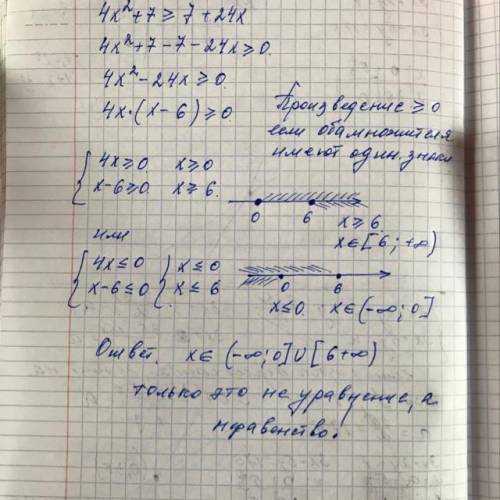 4x²+7 ≥ 7+24x
4x²+7-7-24x ≥ 0.
4x²-24x ≥ 0.
4x·(x-6) ≥ 0
Произведение ≥ 0
если оба множителя
имеют один. знаки
{ 4x ≥ 0 x ≥ 0
x-6 ≥ 0 x ≥ 6.
0 6 x ≥ 6
x ∈ [6; +∞)
или
{ 4x ≤ 0 { x ≤ 0
x-6 ≤ 0 x ≤ 6
0 6
x ≤ 0. x ∈ (-∞; 0]
Ответ. x ∈ (-∞; 0] ∪ [6 +∞)
только это не уравнение, а
неравенство!